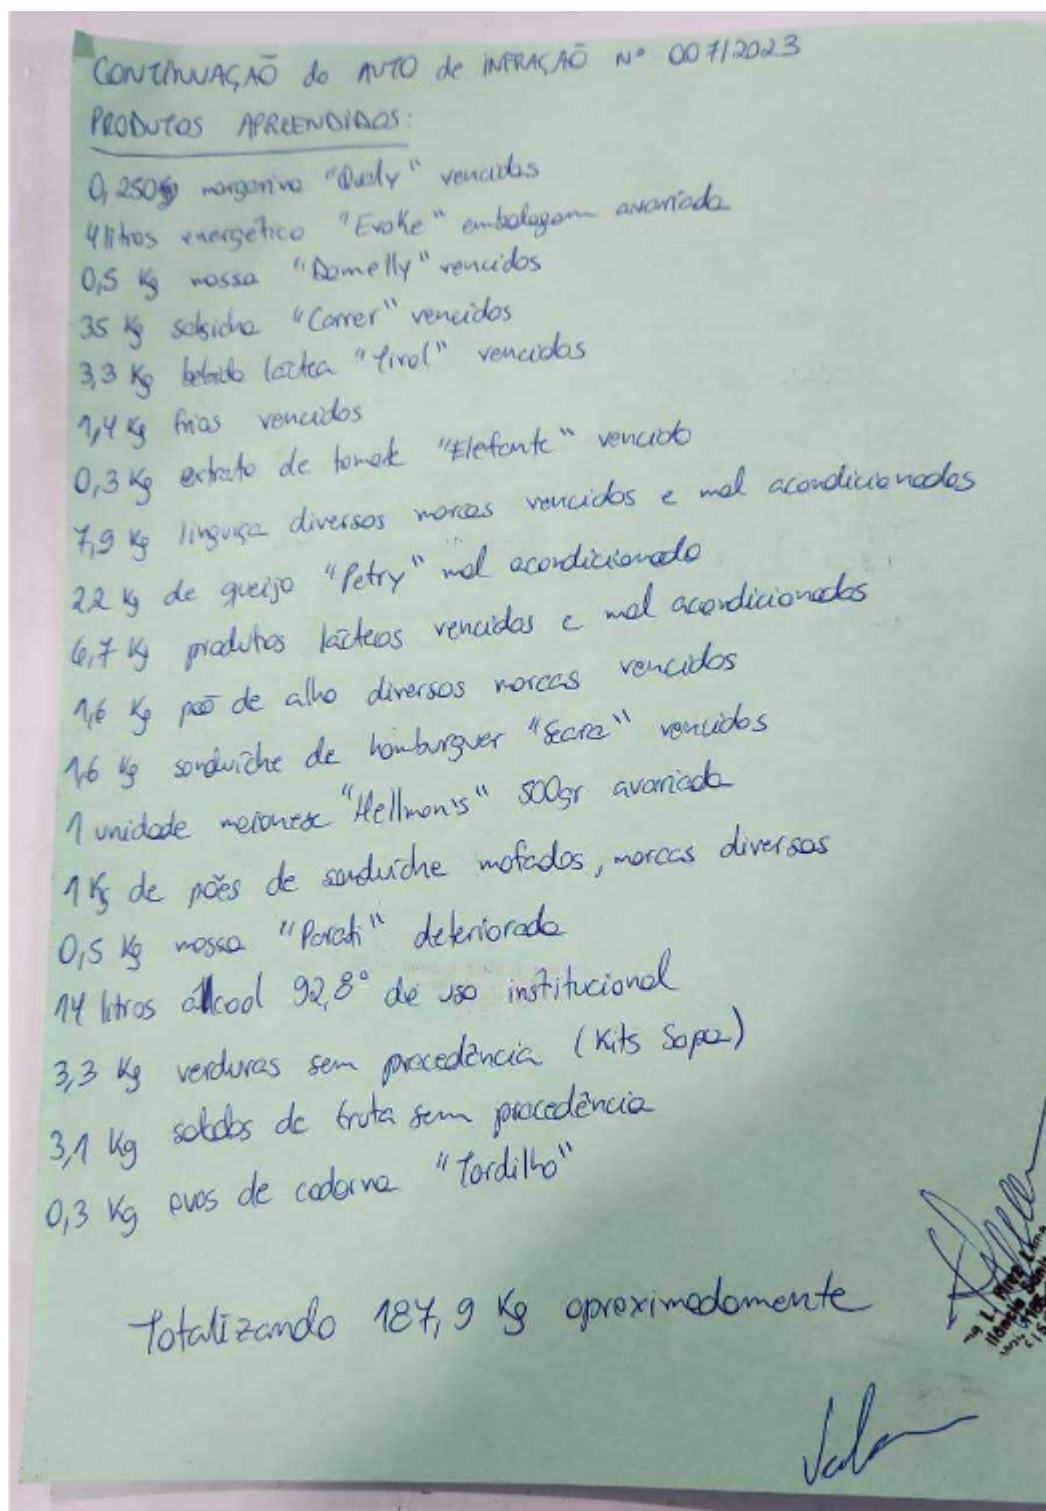 CONTINUAÇÃO do AUTO de iNFRAÇÃO Nº 007/2023
PRODUTOS APREENDIDOS:
0,250kg margarina "Qualy" vencidos
4 litros energético "Evoke" embalagem avariada
0,5 Kg massa "Domelly" vencidos
35 Kg salsicha "Correr" vencidos
3,3 Kg bebida láctea "Tirol" vencidos
1,4 Kg frios vencidos
0,3 Kg extrato de tomate "Elefante" vencido
7,9 Kg linguiça diversos marcas vencidos e mal acondicionados
22 Kg de queijo "Petry" mal acondicionado
6,7 Kg produtos lácteos vencidos e mal acondicionados
1,6 Kg pão de alho diversos marcas vencidos
1,6 Kg sanduíche de hamburguer "Seara" vencidos
1 unidade maionese "Hellman's" 500gr avariada
1 Kg de pães de sanduíche mofados, marcas diversas
0,5 Kg massa "Parati" deteriorada
14 litros álcool 92,8° de uso institucional
3,3 Kg verduras sem procedência (Kits Sopa)
3,1 Kg saladas de fruta sem procedência
0,3 Kg ovos de codorna "Tordilho"
Totalizando 187,9 Kg aproximadamente